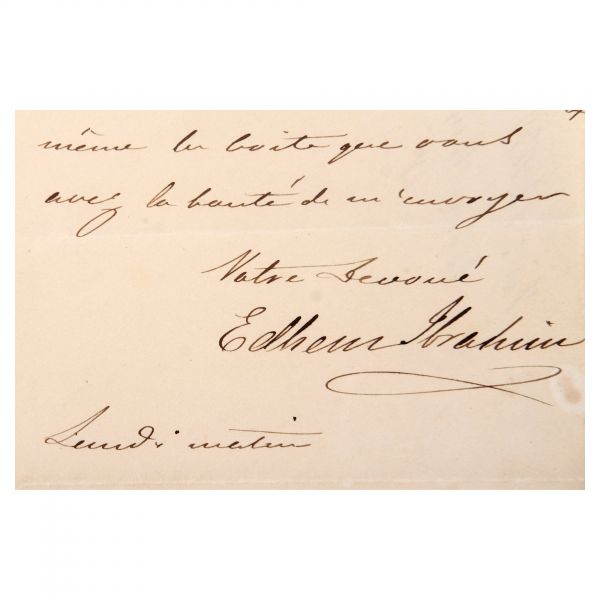 même la boite que vous
avez la bonté de m'envoyer
Votre Devoué
Edhem Ibrahim
Lundi matin